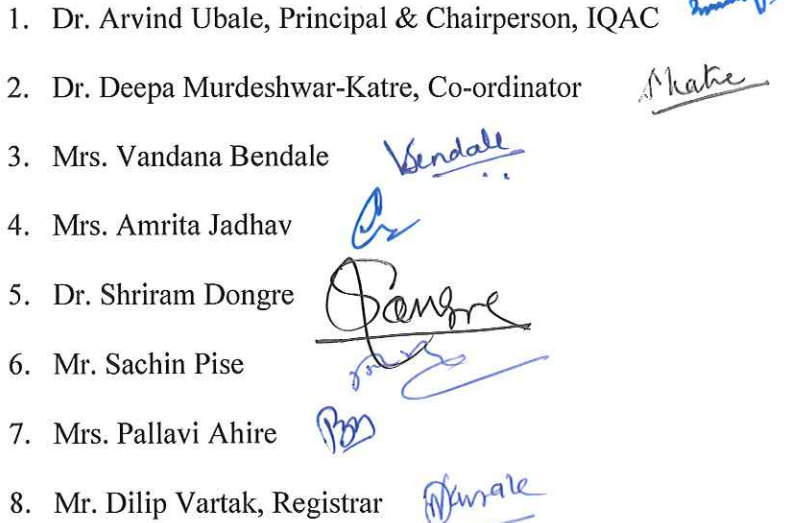 1. Dr. Arvind Ubale, Principal & Chairperson, IQAC
2. Dr. Deepa Murdeshwar-Katre, Co-ordinator
3. Mrs. Vandana Bendale Bendale
4. Mrs. Amrita Jadhav
5. Dr. Shriram Dongre
6. Mr. Sachin Pise
7. Mrs. Pallavi Ahire
8. Mr. Dilip Vartak, Registrar